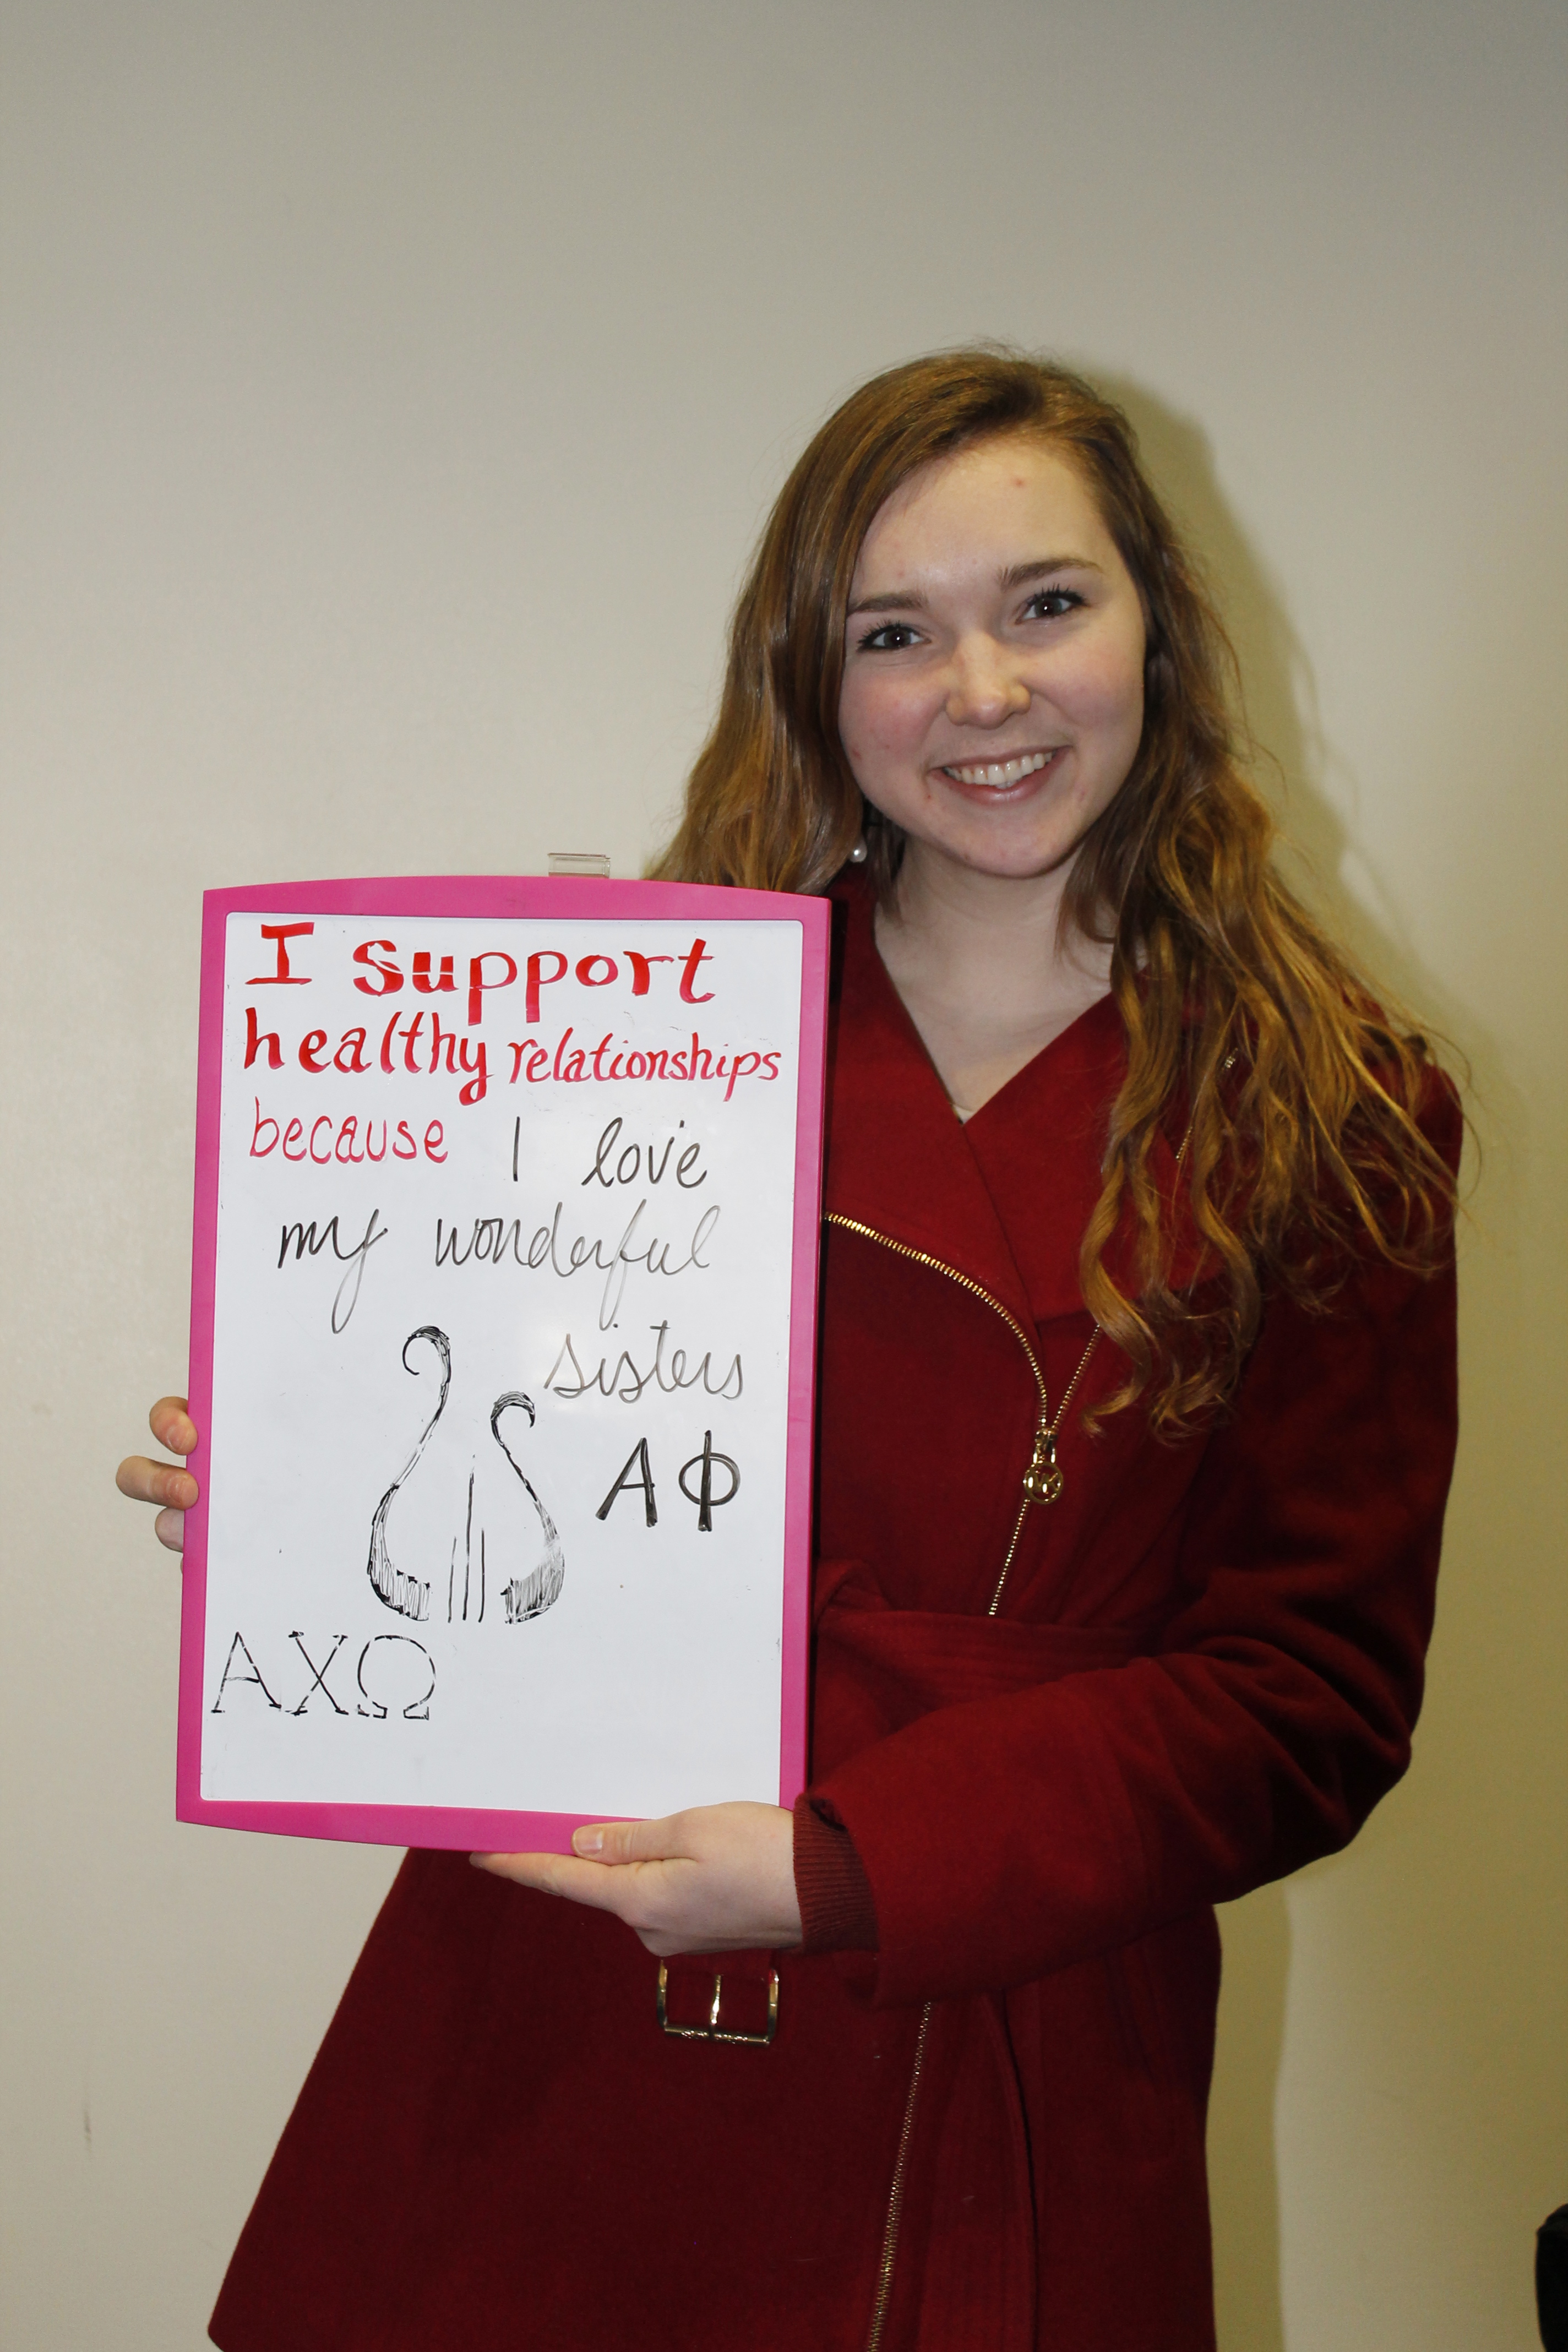 I support
healthy relationships
because I love
my wonderful
sisters
ΑΦ
ΑΧΩ
MK